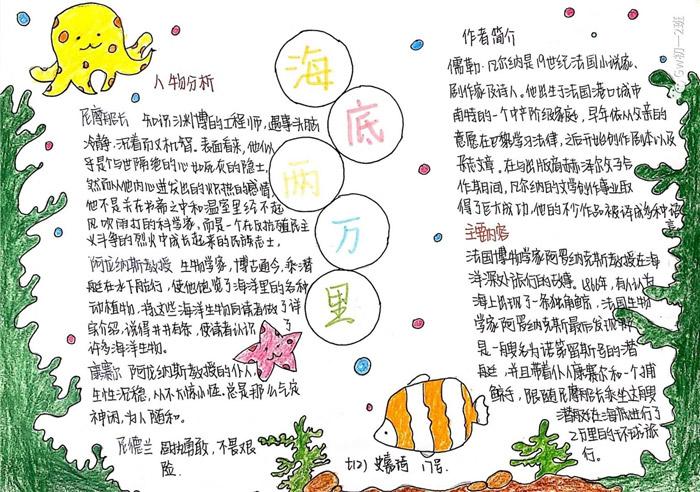 海
底
两
万
里
人物分析
尼摩船长 知识渊博的工程师，遇事头脑
冷静，沉着而又机智。表面看来，他似
乎是个与世隔绝的心如死灰的隐士，
然而从他内心迸发出的炽热的感情，
他不是关在书斋之中和温室里经不起
风吹雨打的科学家，而是一个在反抗殖民主
义斗争的烈火中成长起来的民族志士。
阿龙纳斯教授 生物学家，博古通今，乘潜
艇在水下航行，使他饱览了海洋里的各种
动植物，将这些海洋生物向读者做了详
实介绍，说得井井有条，使读者认识了
许多海洋生物。
康塞尔 阿龙纳斯教授的仆人，
生性沉稳，从不大惊小怪，总是那么气定
神闲，为人随和。
尼德兰 勇敢，不畏艰
险.
作者简介
儒勒·凡尔纳是19世纪法国小说家、
剧作家及诗人。他出生于法国港口城市
南特的一个中产阶级家庭，早年依从父亲的
意愿在巴黎学习法律，之后开始创作剧本以及
杂志文章。在与出版商赫泽尔父子合
作期间，凡尔纳的文学创作事业取
得了巨大成功，他的不少作品被译成多种语
言
主要内容
法国博物学家阿罗纳克斯教授在海
洋深处旅行的故事。1866年，有人认为
海上出现了一条独角鲸，法国生物
学家阿罗纳克斯最后发现那
是一艘名为诺第留斯号的潜
艇，并且带着仆人康塞尔和一个捕
鲸手，跟随尼摩船长乘坐这艘
潜艇在海底进行了
2万里的环球旅
行。
7(2) 17号.
初一2班